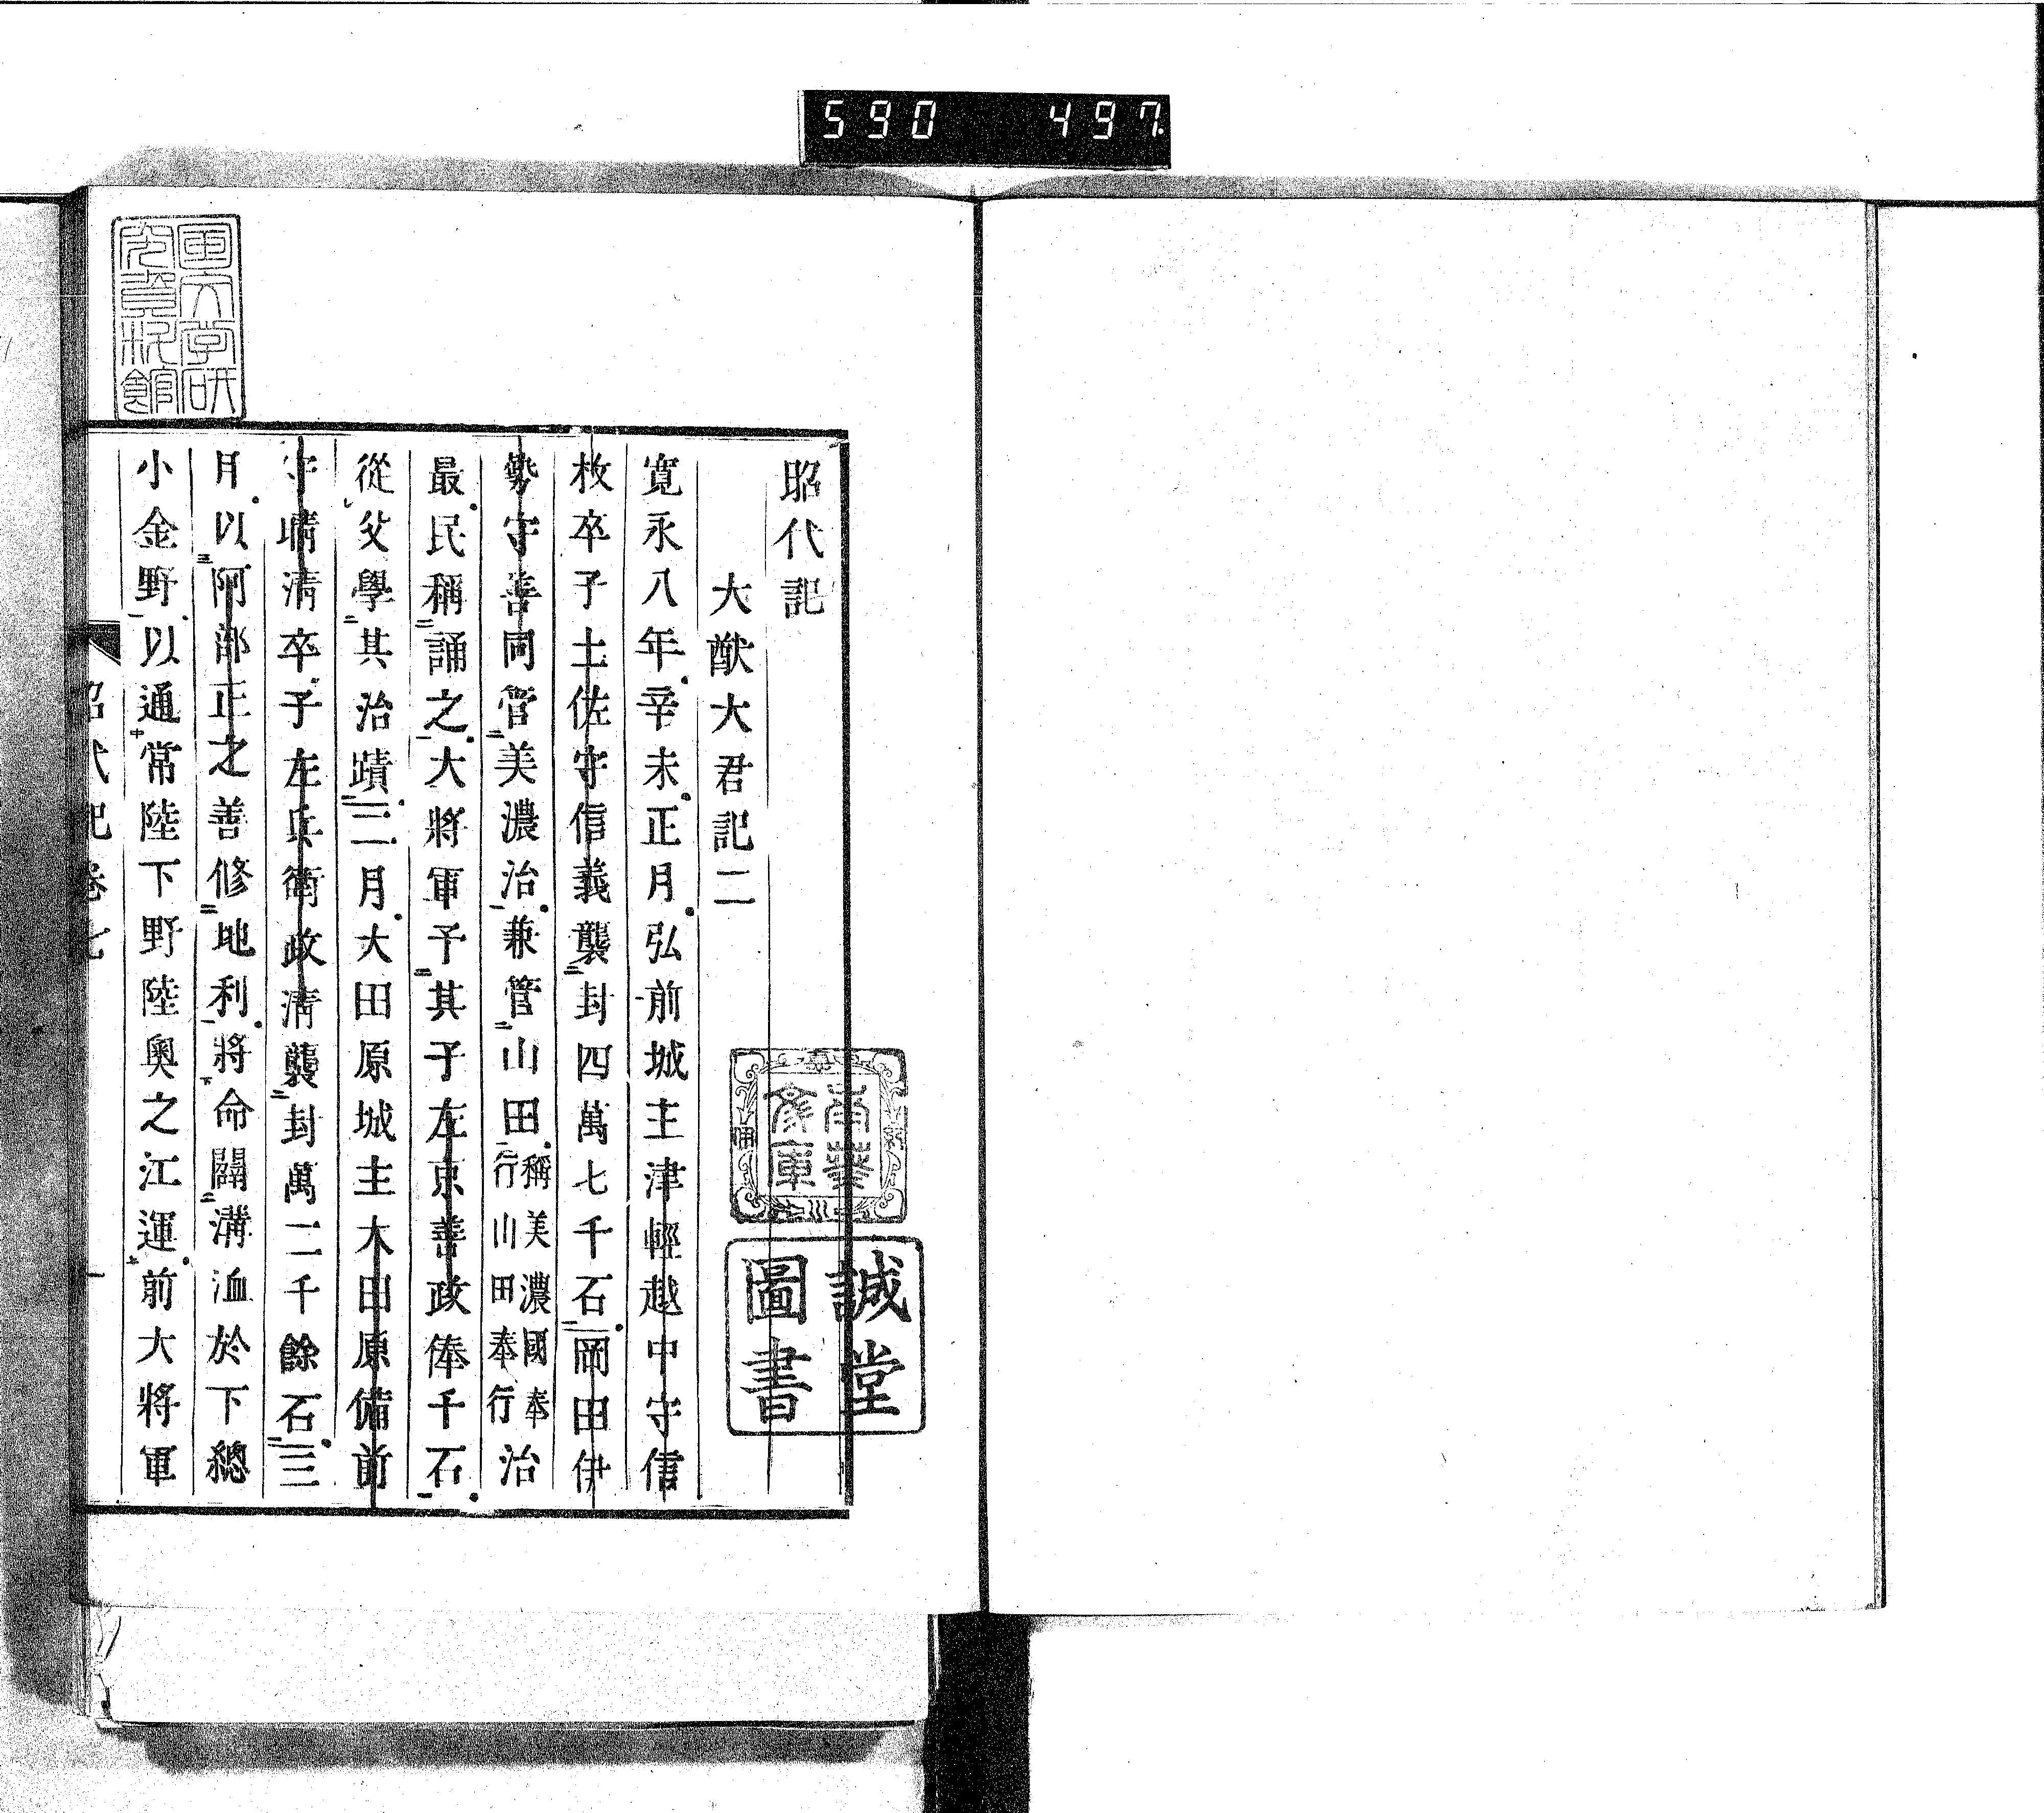 590 497.
昭代記
大猷大君記二
寛永八年辛未正月弘前城主津輕越中守信
枚卒子土佐守信義襲封四萬七千石岡田伊
勢守善同管美濃治兼管山田稱美濃國奉行山田奉行治
最民稱誦之大將軍予其子左京善政俸千石
從父學其治蹟二月大田原城主大田原備前
守晴清卒子左兵衛政清襲封萬二千餘石三
月以阿部正之善修地利將命闢溝洫於下總
小金野以通常陸下野陸奥之江運前大將軍
昭代記卷七
一
誠堂
圖書
國文學研
究資料館